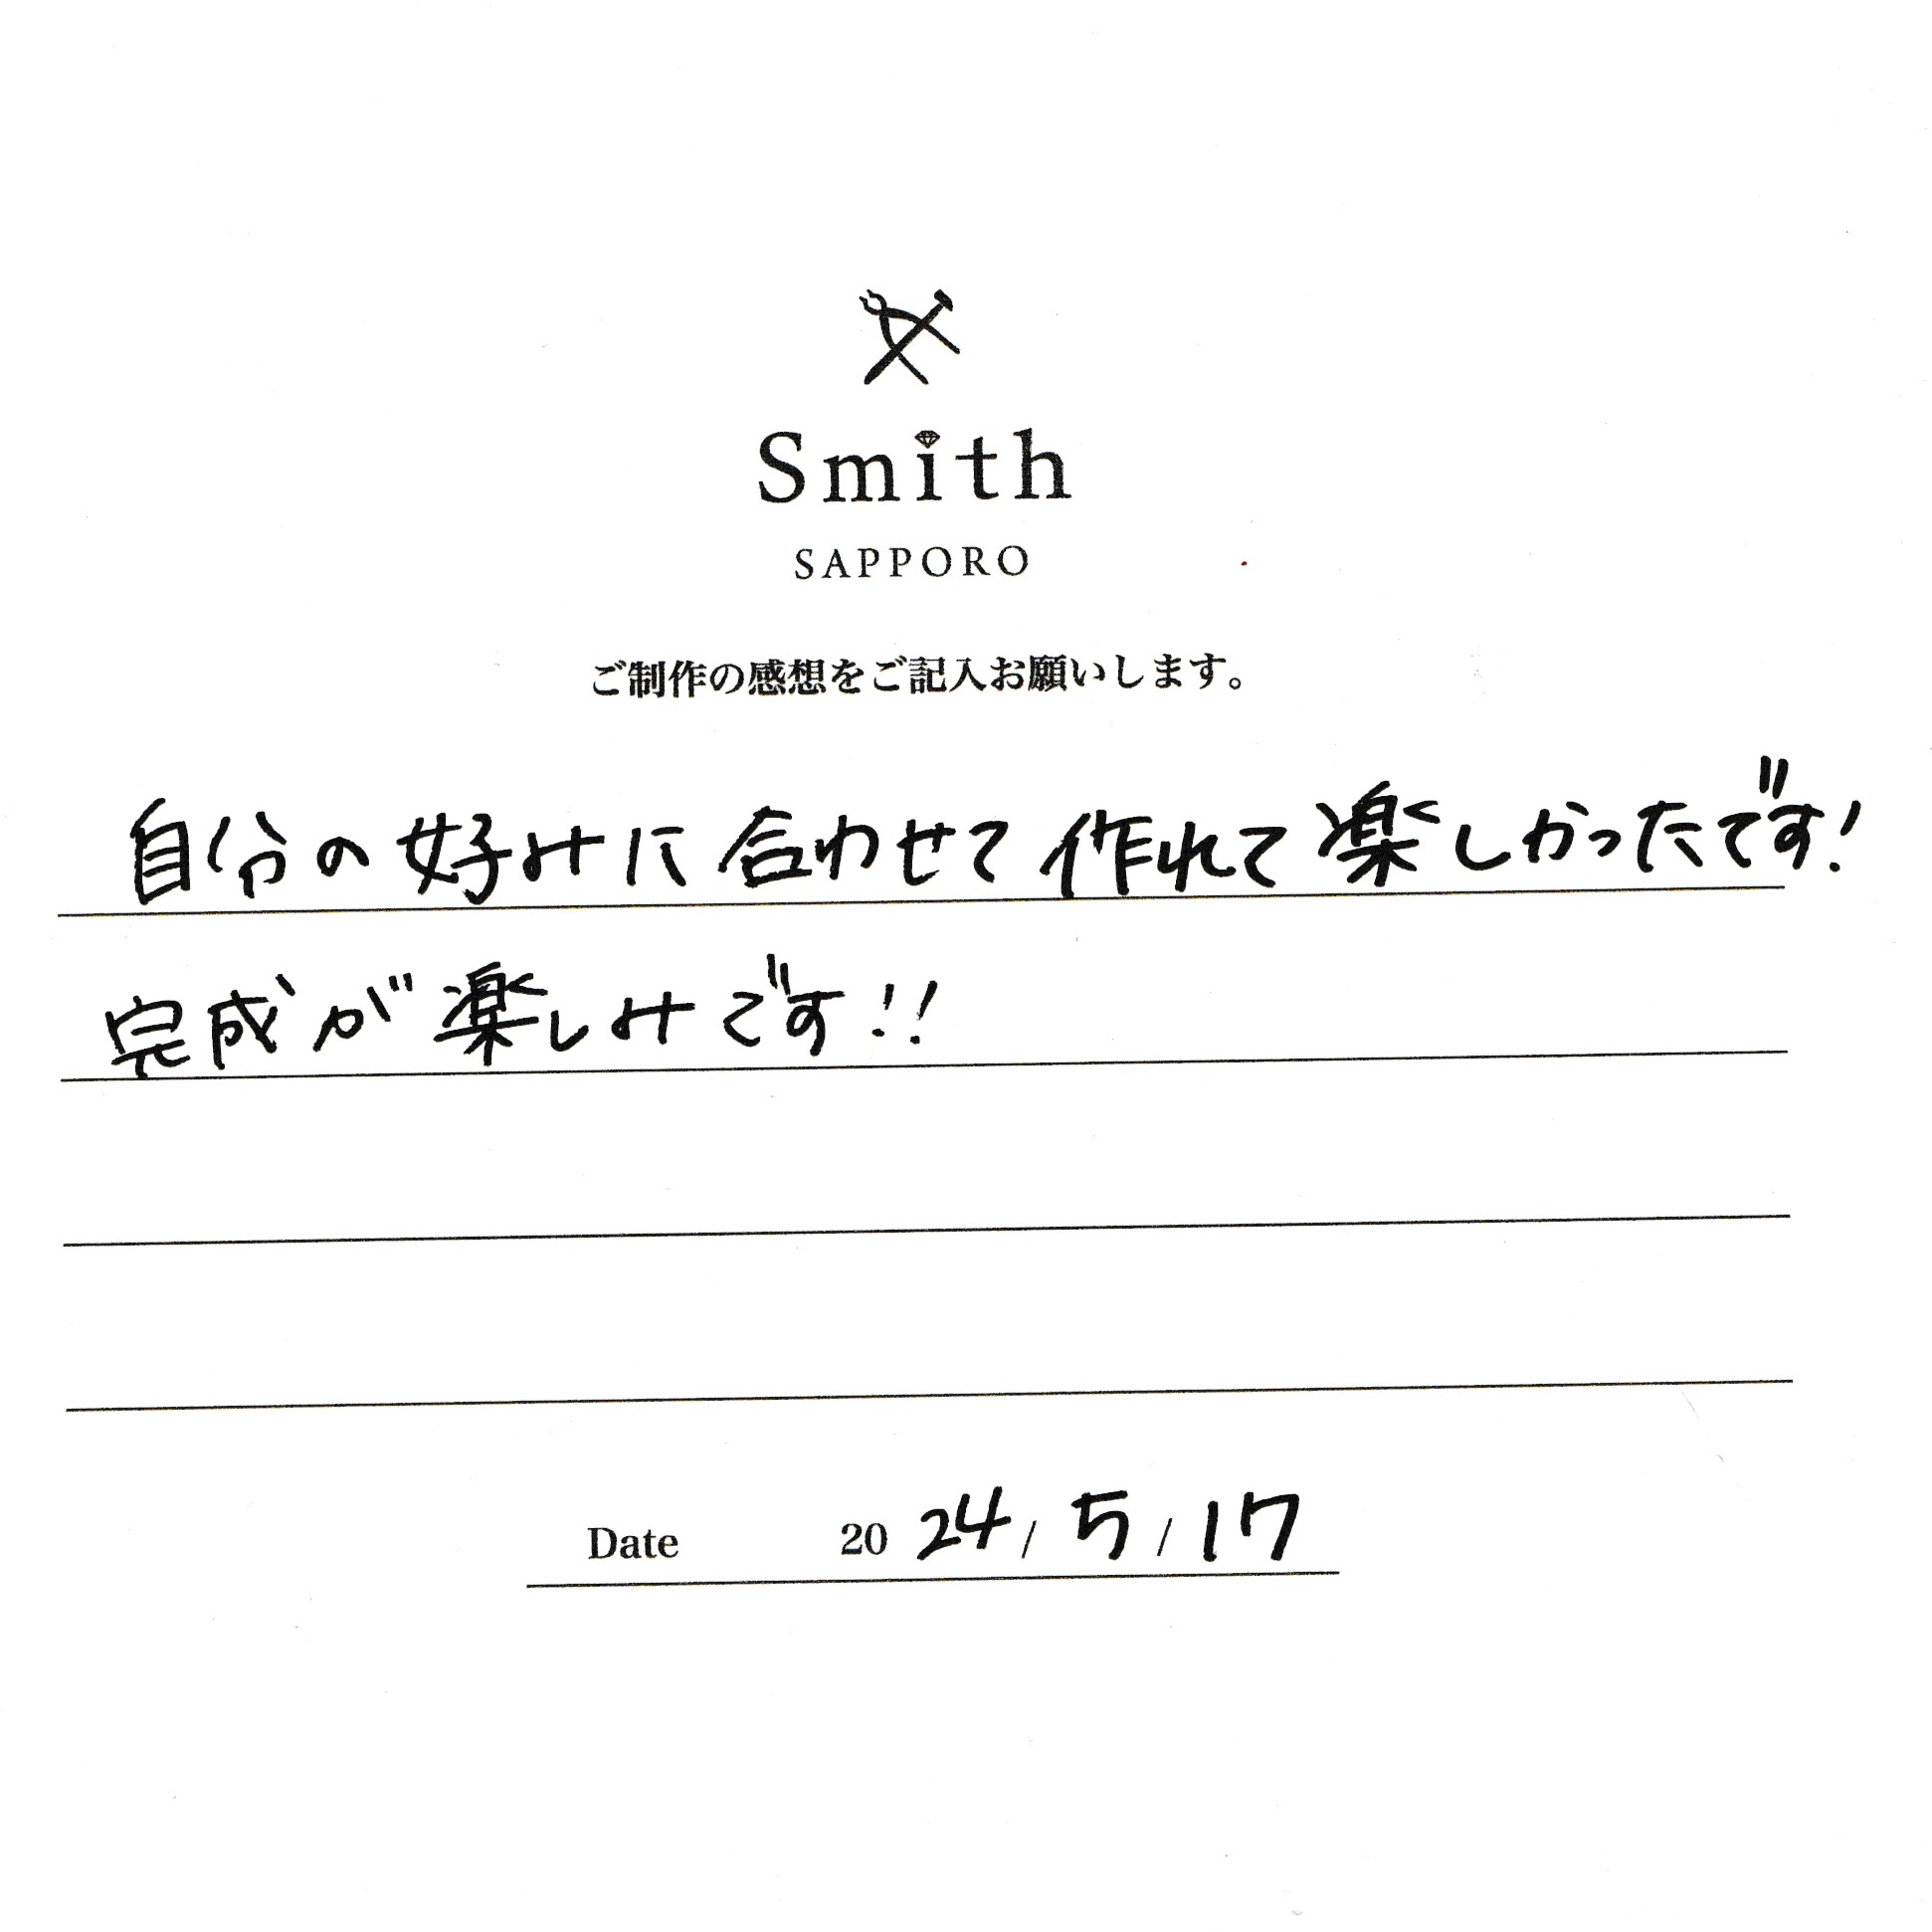 Smith
SAPPORO
ご制作の感想をご記入お願いします。
自分の好みに合わせて作れて楽しかったです!
完成が楽しみです!!
Date 2024/5/17